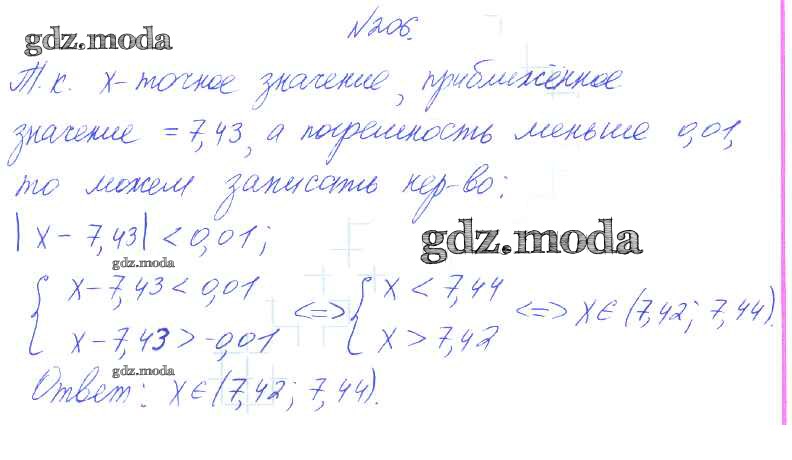 №206.
gdz.moda
Т.к. x-точное значение, приближённое
значение = 7,43, а погрешность меньше 0,01,
то можем записать нер-во:
|x - 7,43| < 0,01;
gdz.moda
gdz.moda
{ x - 7,43 < 0,01 <=> { x < 7,44 <=> x ∈ (7,42; 7,44).
x - 7,43 > -0,01 x > 7,42
gdz.moda
Ответ: x ∈ (7,42; 7,44).